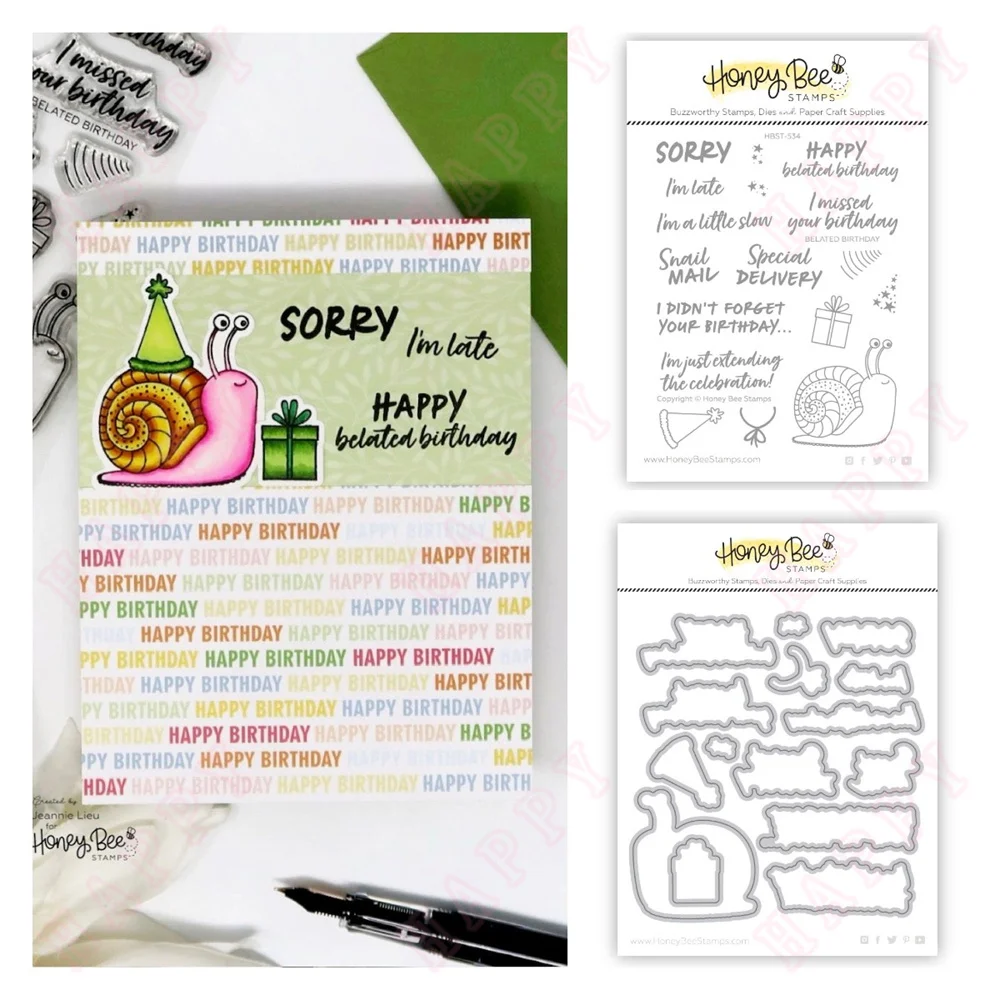 birthday
I missed
your birthday
BELATED BIRTHDAY
HAPPY BIRTHDAY HAPPY BIRTHDAY HAPPY BIRTHDAY
THDAY HAPPY BIRTHDAY HAPPY BIRTHDAY HAPPY BIRT
PY BIRTHDAY HAPPY BIRTHDAY HAPPY BIRTHDAY HAPP
SORRY
I'm late
HAPPY
belated birthday
BIRTHDAY HAPPY BIRTHDAY HAPPY BIRTHDAY HAPPY B
PY BIRTHDAY HAPPY BIRTHDAY HAPPY BIRTHDAY HAPP
HDAY HAPPY BIRTHDAY HAPPY BIRTHDAY HAPPY BIRTH
BIRTHDAY HAPPY BIRTHDAY HAPPY BIRTHDAY HAPPY
PPY BIRTHDAY HAPPY BIRTHDAY HAPPY BIRTHDAY HAP
THDAY HAPPY BIRTHDAY HAPPY BIRTHDAY HAPPY BIRT
PPY BIRTHDAY HAPPY BIRTHDAY HAPPY BIRTHDAY HAP
THDAY HAPPY BIRTHDAY HAPPY BIRTHDAY HAPPY BIRT
PY BIRTHDAY HAPPY BIRTHDAY HAPPY BIRTHDAY HAPP
BIRTHDAY HAPPY BIRTHDAY HAPPY BIRTHDAY HAPPY B
PY BIRTHDAY HAPPY BIRTHDAY HAPPY BIRTHDAY HAPP
HDAY HAPPY BIRTHDAY HAPPY BIRTHDAY HAPPY BIRTH
Created by
Jeannie Lieu
for
Honey Bee
STAMPS
Honey Bee
STAMPS
Buzzworthy Stamps, Dies and Paper Craft Supplies
HBST-534
SORRY
I'm late
I'm a little slow
Snail
MAIL
HAPPY
belated birthday
I missed
your birthday
BELATED BIRTHDAY
Special
DELIVERY
I DIDN'T FORGET
YOUR BIRTHDAY...
I'm just extending
the celebration!
Copyright © Honey Bee Stamps
www.HoneyBeeStamps.com
Honey Bee
STAMPS
Buzzworthy Stamps, Dies and Paper Craft Supplies
www.HoneyBeeStamps.com
HAPPY